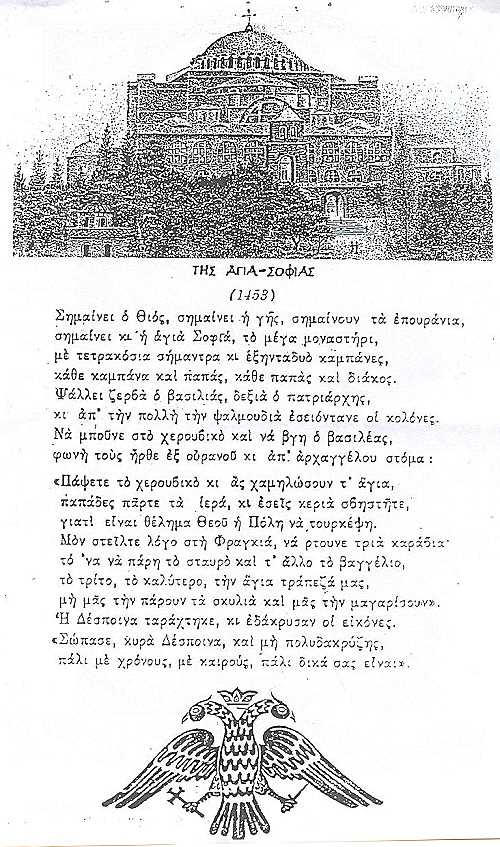 ΤΗΣ ΑΓΙΑ-ΣΟΦΙΑΣ
(1453)
Σημαίνει ὁ Θιός, σημαίνει ἡ γῆς, σημαίνουν τὰ ἐπουράνια,
σημαίνει κι ἡ ἁγιὰ Σοφιά, τὸ μέγα μοναστήρι,
μὲ τετρακόσια σήμαντρα κι ἑξηνταδυὸ καμπάνες,
κάθε καμπάνα καὶ παπάς, κάθε παπὰς καὶ διάκος.
Ψάλλει ζερβὰ ὁ βασιλιάς, δεξιὰ ὁ πατριάρχης,
κι ἀπ' τὴν πολλὴ τὴν ψαλμουδιὰ ἐσειόντανε οἱ κολόνες.
Νὰ μποῦνε στὸ χερουβικὸ καὶ νά βγη ὁ βασιλέας,
φωνὴ τοὺς ἦρθε ἐξ οὐρανοῦ κι ἀπ' ἀρχαγγέλου στόμα :
«Πάψετε τὸ χερουβικὸ κι ἂς χαμηλώσουν τ' ἅγια,
παπάδες πάρτε τὰ ἱερά, κι ἐσεῖς κεριὰ σβηστῆτε,
γιατὶ εἶναι θέλημα Θεοῦ ἡ Πόλη νὰ τουρκέψη.
Μὸν στεῖλτε λόγο στὴ Φραγκιά, νὰ ρτουνε τριὰ καράβια·
τό 'να νὰ πάρη τὸ σταυρὸ καὶ τ' ἄλλο τὸ βαγγέλιο,
τὸ τρίτο, τὸ καλύτερο, τὴν ἅγια τράπεζά μας,
μὴ μᾶς τὴν πάρουν τὰ σκυλιὰ καὶ μᾶς τὴν μαγαρίσουν».
Ἡ Δέσποινα ταράχτηκε, κι ἐδάκρυσαν οἱ εἰκόνες.
«Σώπασε, κυρὰ Δέσποινα, καὶ μὴ πολυδακρύζης,
πάλι μὲ χρόνους, μὲ καιρούς, πάλι δικά σας εἶναι».